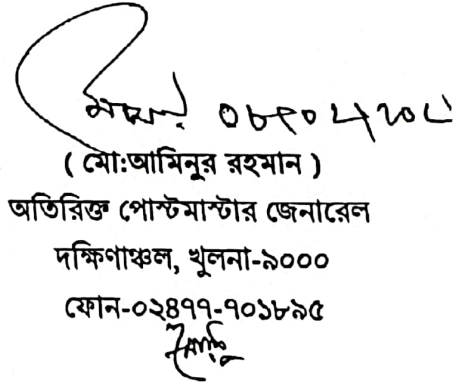 ( মো:আমিনুর রহমান )
অতিরিক্ত পোস্টমাস্টার জেনারেল
দক্ষিণাঞ্চল, খুলনা-৯০০০
ফোন-০২৪৭৭-৭০১৮৯৫